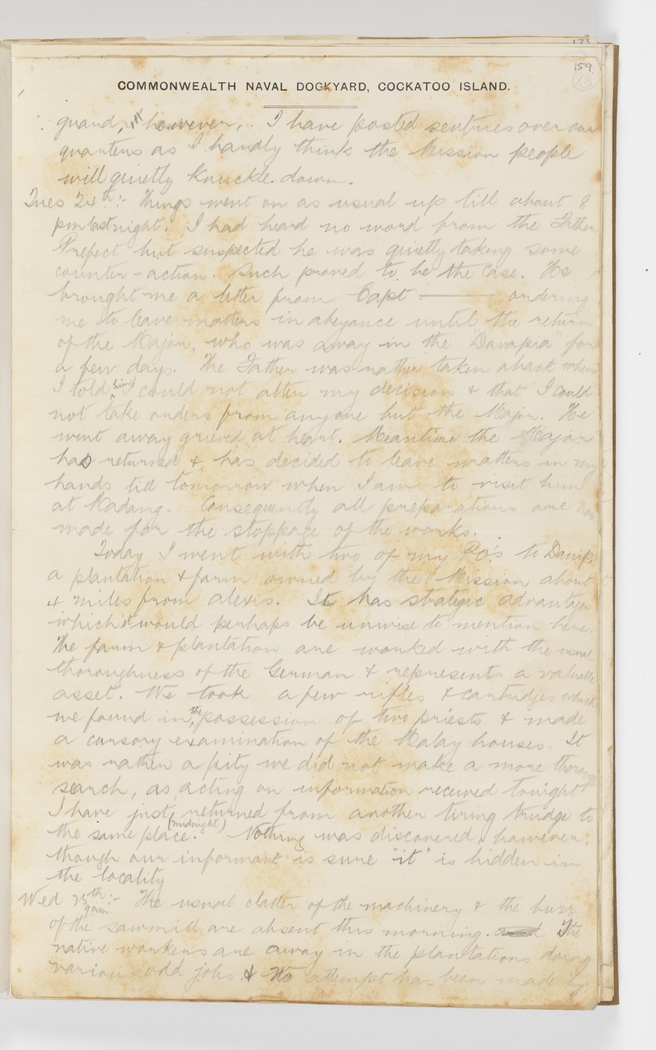 159
COMMONWEALTH NAVAL DOCKYARD, COCKATOO ISLAND.
guard, however, I have posted sentries over our
quarters as I hardly think the Mission people
will quietly knuckle down.
Tues 24th:- Things went on as usual up till about 8
pm last night. I had heard no word from the Father
Prefect but suspected he was quietly taking some
counter-action. Such proved to be the case. He
brought me a letter from Capt ——— ordering
me to leave matters in abeyance until the return
of the Major, who was away in the Davapia for
a few days. The Father was rather taken aback when
I told him I could not alter my decision & that I could
not take orders from anyone but the Major. He
went away grieved at heart. Meantime the Major
has returned & has decided to leave matters in my
hands till tomorrow when I am to visit him
at Madang. Consequently all preparations are
made for the stoppage of the works.
Today I went with two of my P.O's to
a plantation & farm owned by the Mission about
4 miles from Alexis. It has stategic advantages
which it would perhaps be unwise to mention here.
The farm & plantation are worked with the usual
thoroughness of the German & represents a valuable
asset. We took a few rifles & cartridges which
we found in the possession of two priests & made
a cursory examination of the Malay houses. It
was rather a pity we did not make a more thorough
search, as acting on information received tonight
I have just returned from another tiring trudge to
the same place. (midnight) Nothing was discovered, however;
though our informant is sure "it" is hidden in
the locality
Wed 25th:- The usual clatter of the machinery & the buzz
of the sawmill are absent this morning. The
native workers are away in the plantations doing
various odd jobs & No attempt has been made by